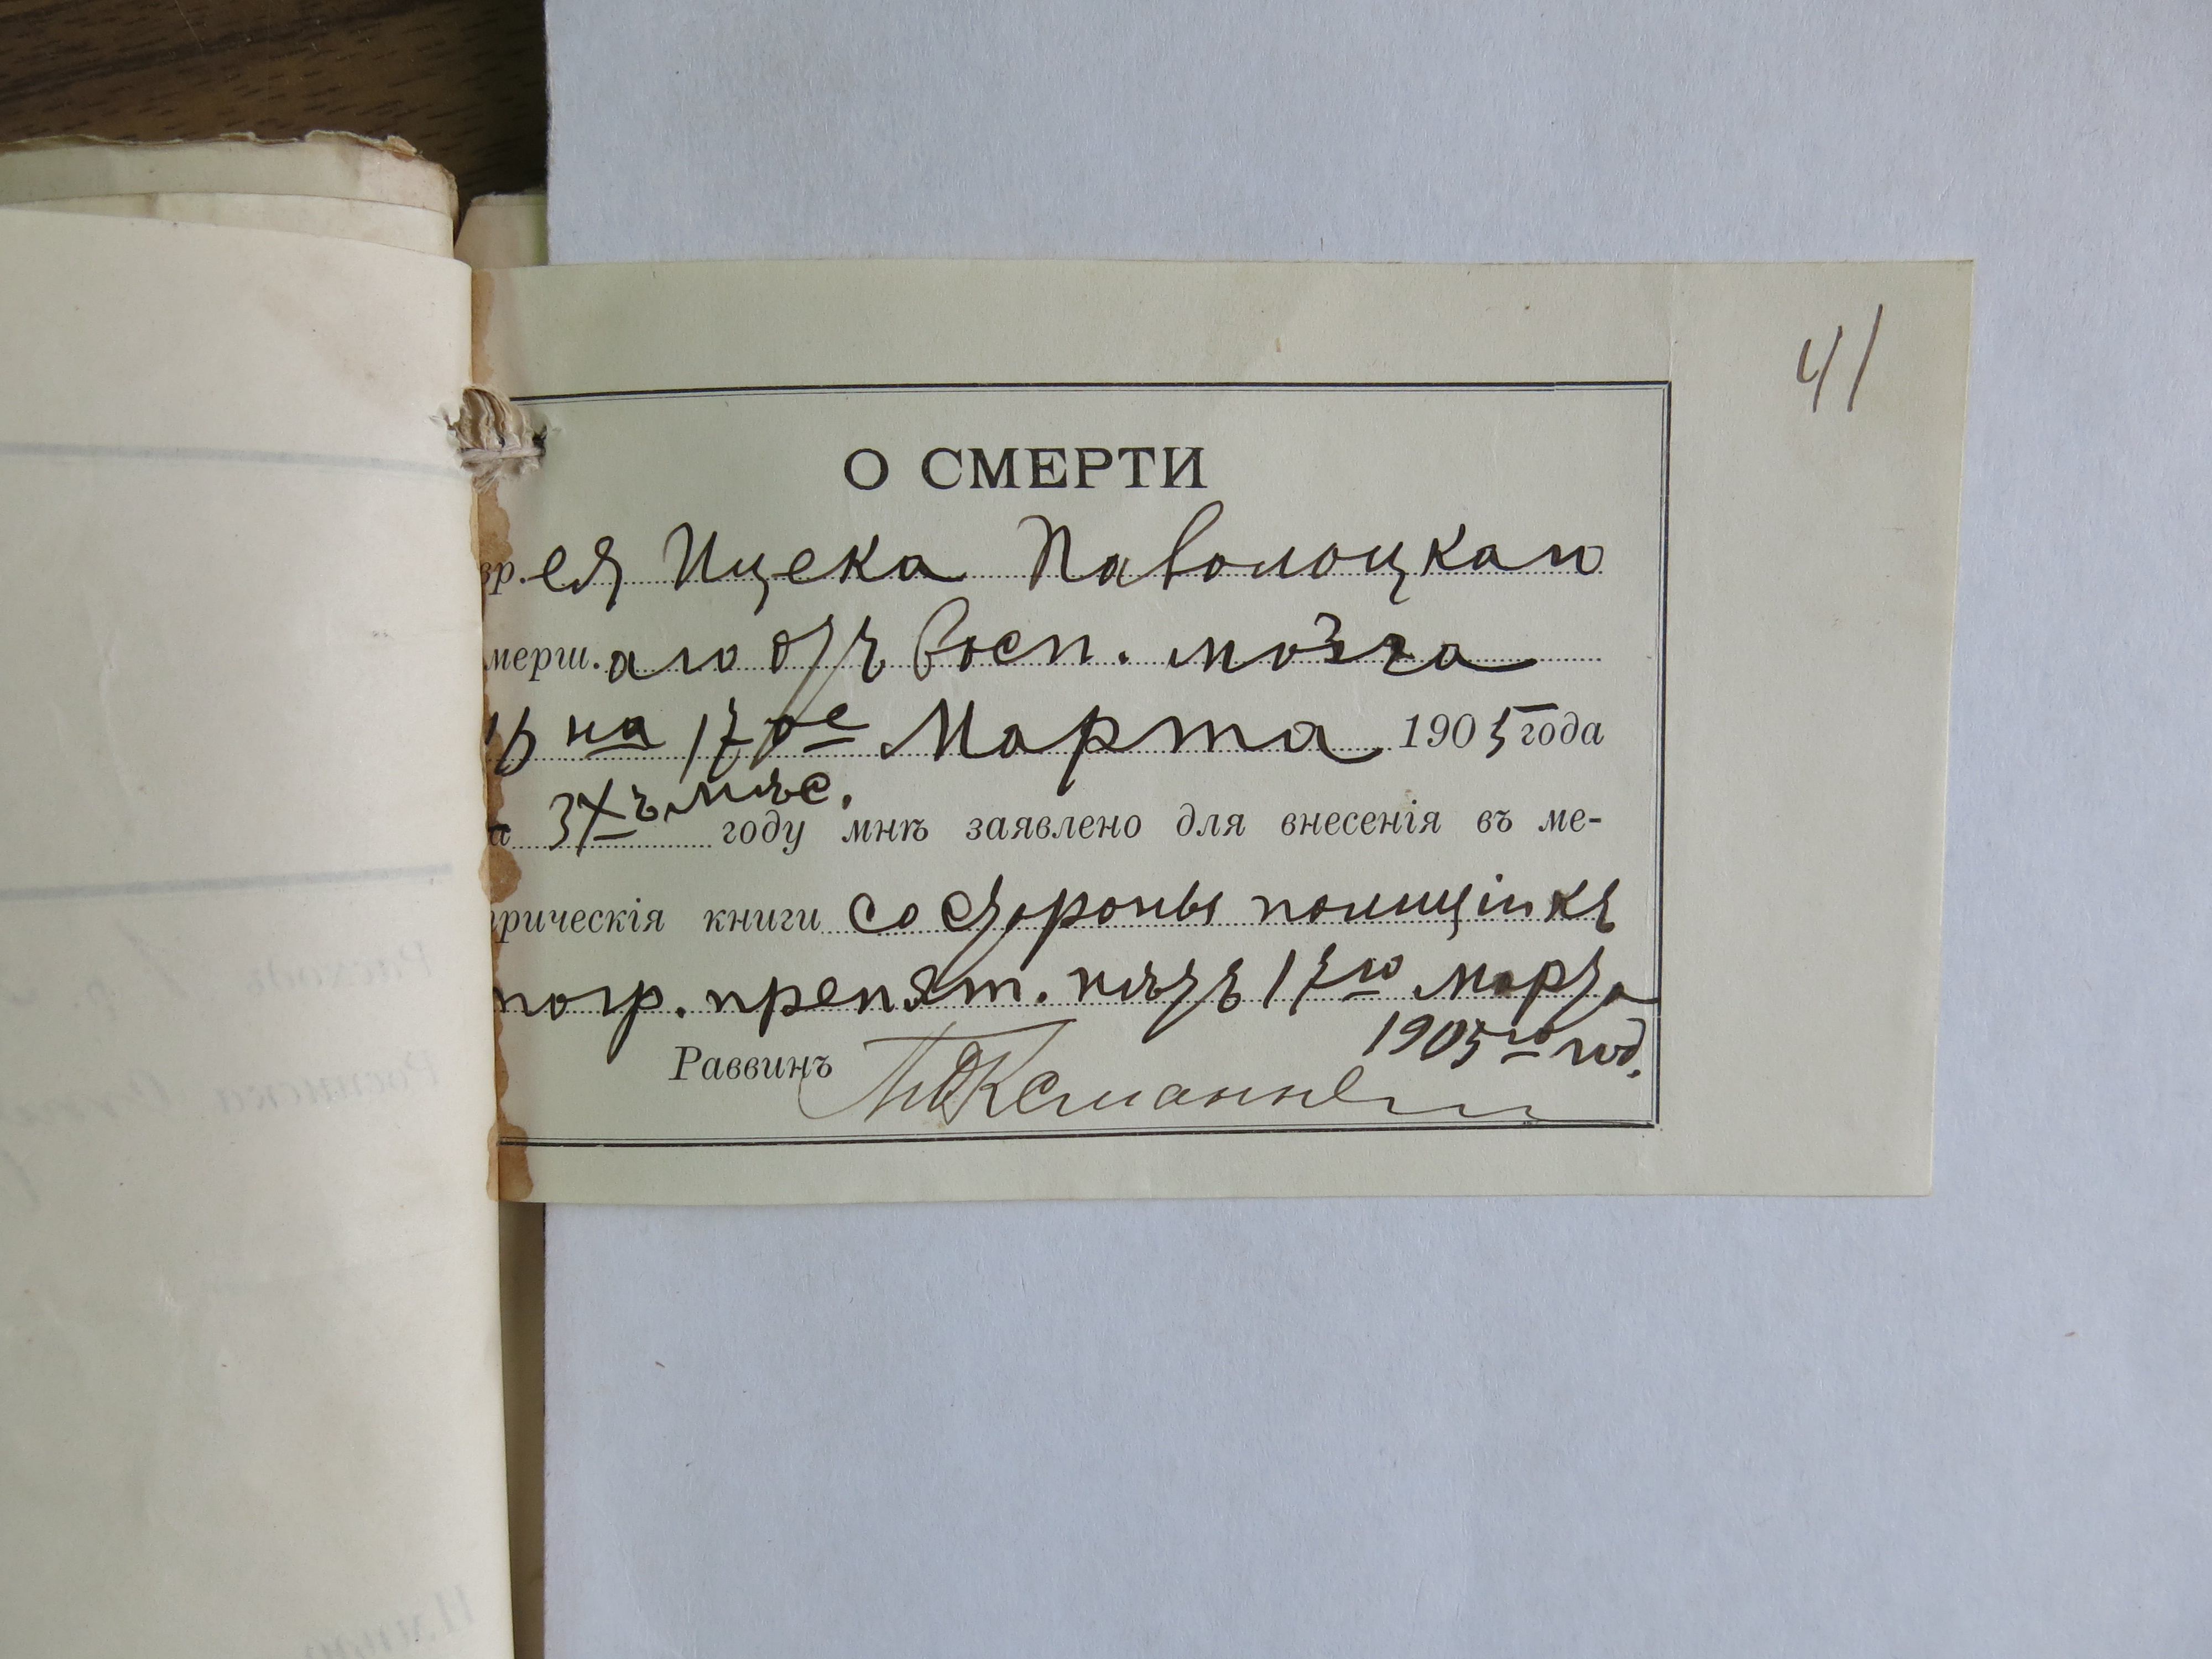 41
О СМЕРТИ
вр.ея Ицека Паволоцкаго
мерш.аго отъ восп. мозга
16 на 17 ое Марта 1905 года
а 3хъ мѣс. году мнѣ заявлено для внесенія въ ме-
рическія книги со стороны полиціи къ
погр. препят. нѣтъ 17го марта
1905го год.
Раввинъ